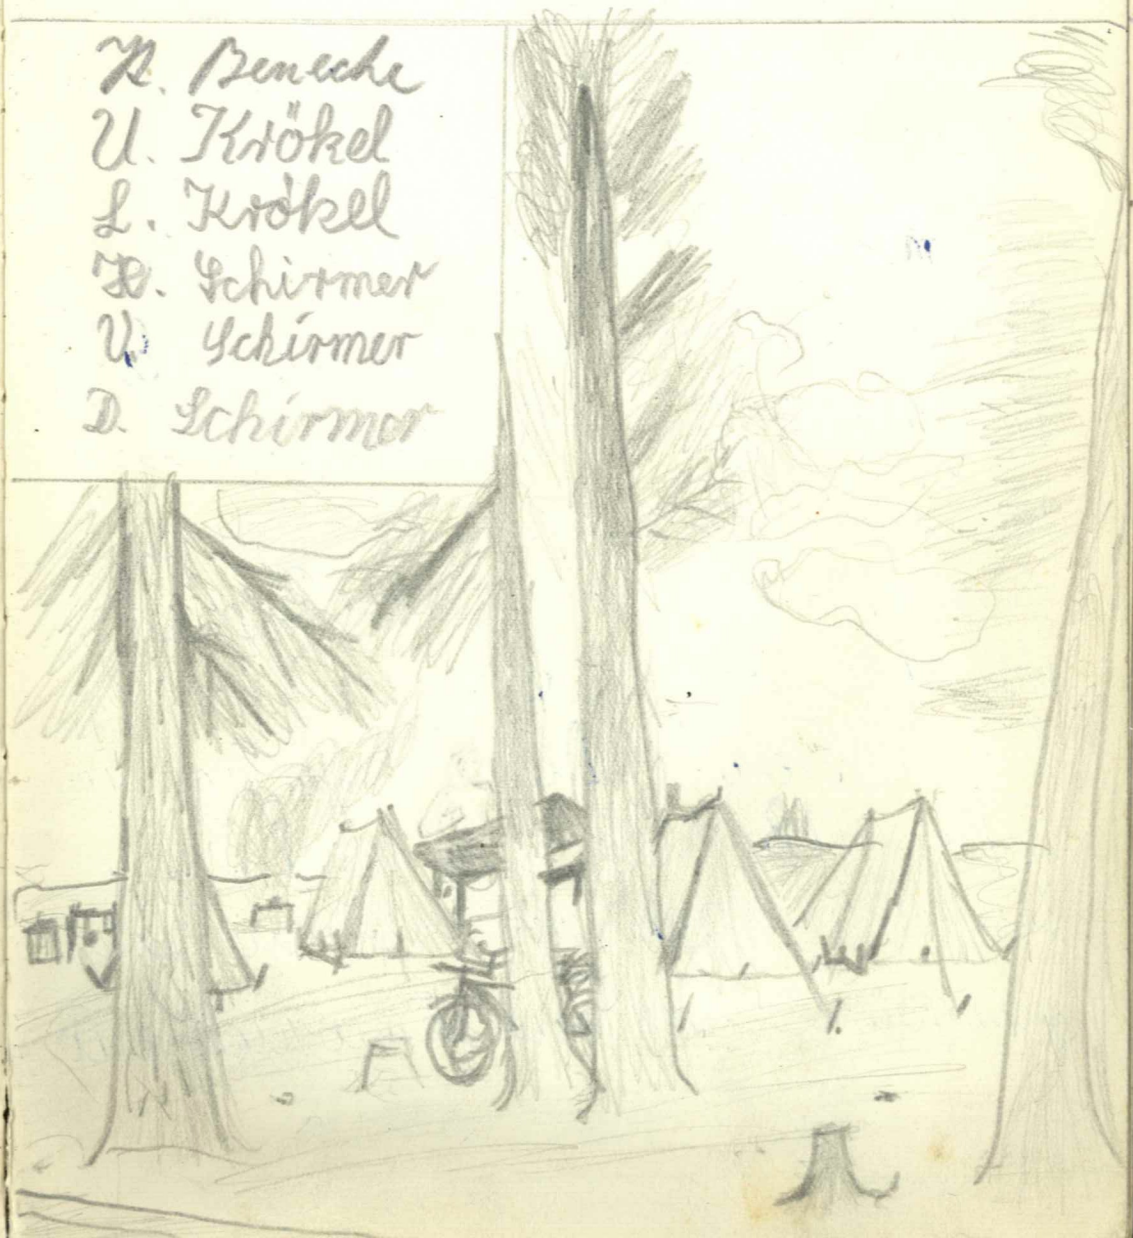 Benecke
U. Krökel
L. Krökel
H. Schirmer
U. Schirmer
D. Schirmer